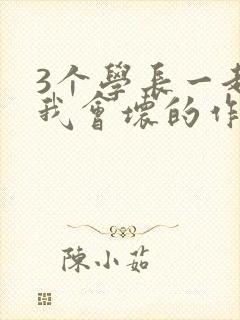 3个學長一起
我會壞的作
陳小茹